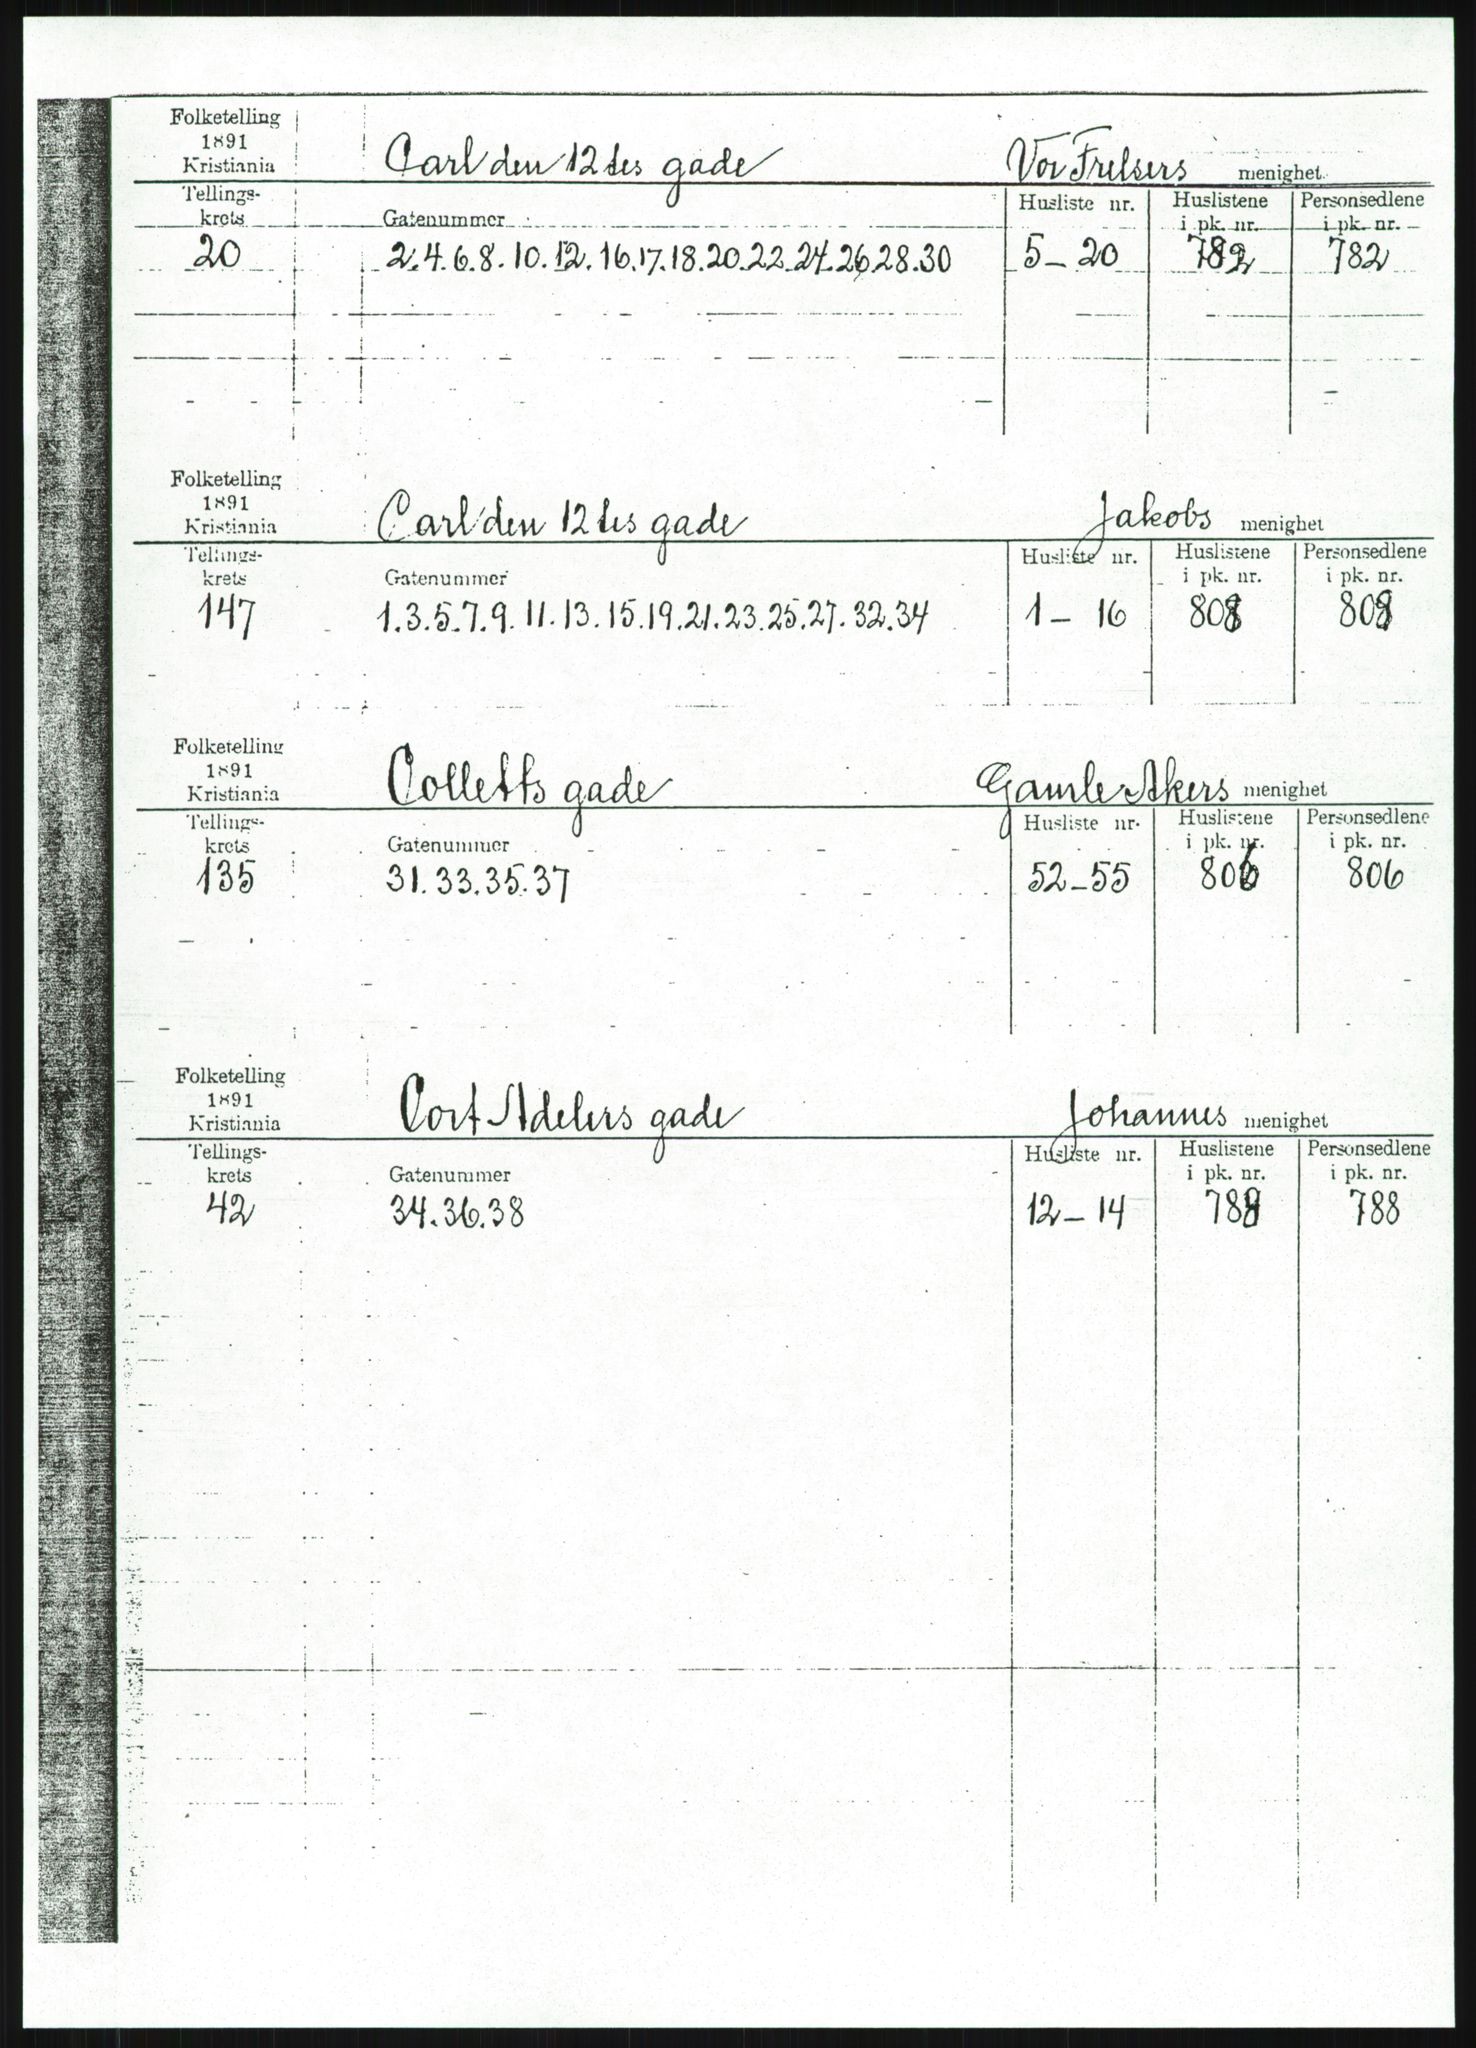 Folketelling
1891
Kristiania Carl den 12tes gade Vor Frelsers menighet
Tellings- Husliste nr. Huslistene Personsedlene
krets Gatenummer i pk. nr. i pk. nr.
20 2.4.6.8.10.12.16.17.18.20.22.24.26.28.30 5-20 782 782
Folketelling
1891
Kristiania Carl den 12tes gade Jakobs menighet
Tellings- Husliste nr. Huslistene Personsedlene
krets Gatenummer i pk. nr. i pk. nr.
147 1.3.5.7.9.11.13.15.19.21.23.25.27.32.34 1-16
Folketelling
1891
Kristiania Colletts gade Gamle Akers menighet
Tellings- Husliste nr. Huslistene Personsedlene
krets Gatenummer i pk. nr. i pk. nr.
135 31.33.35.37 52-55 806 806
Folketelling
1891
Kristiania Cort Adelers gade Johannes menighet
Tellings- Husliste nr. Huslistene Personsedlene
krets Gatenummer i pk. nr. i pk. nr.
42 34.36.38 12-14 788 788